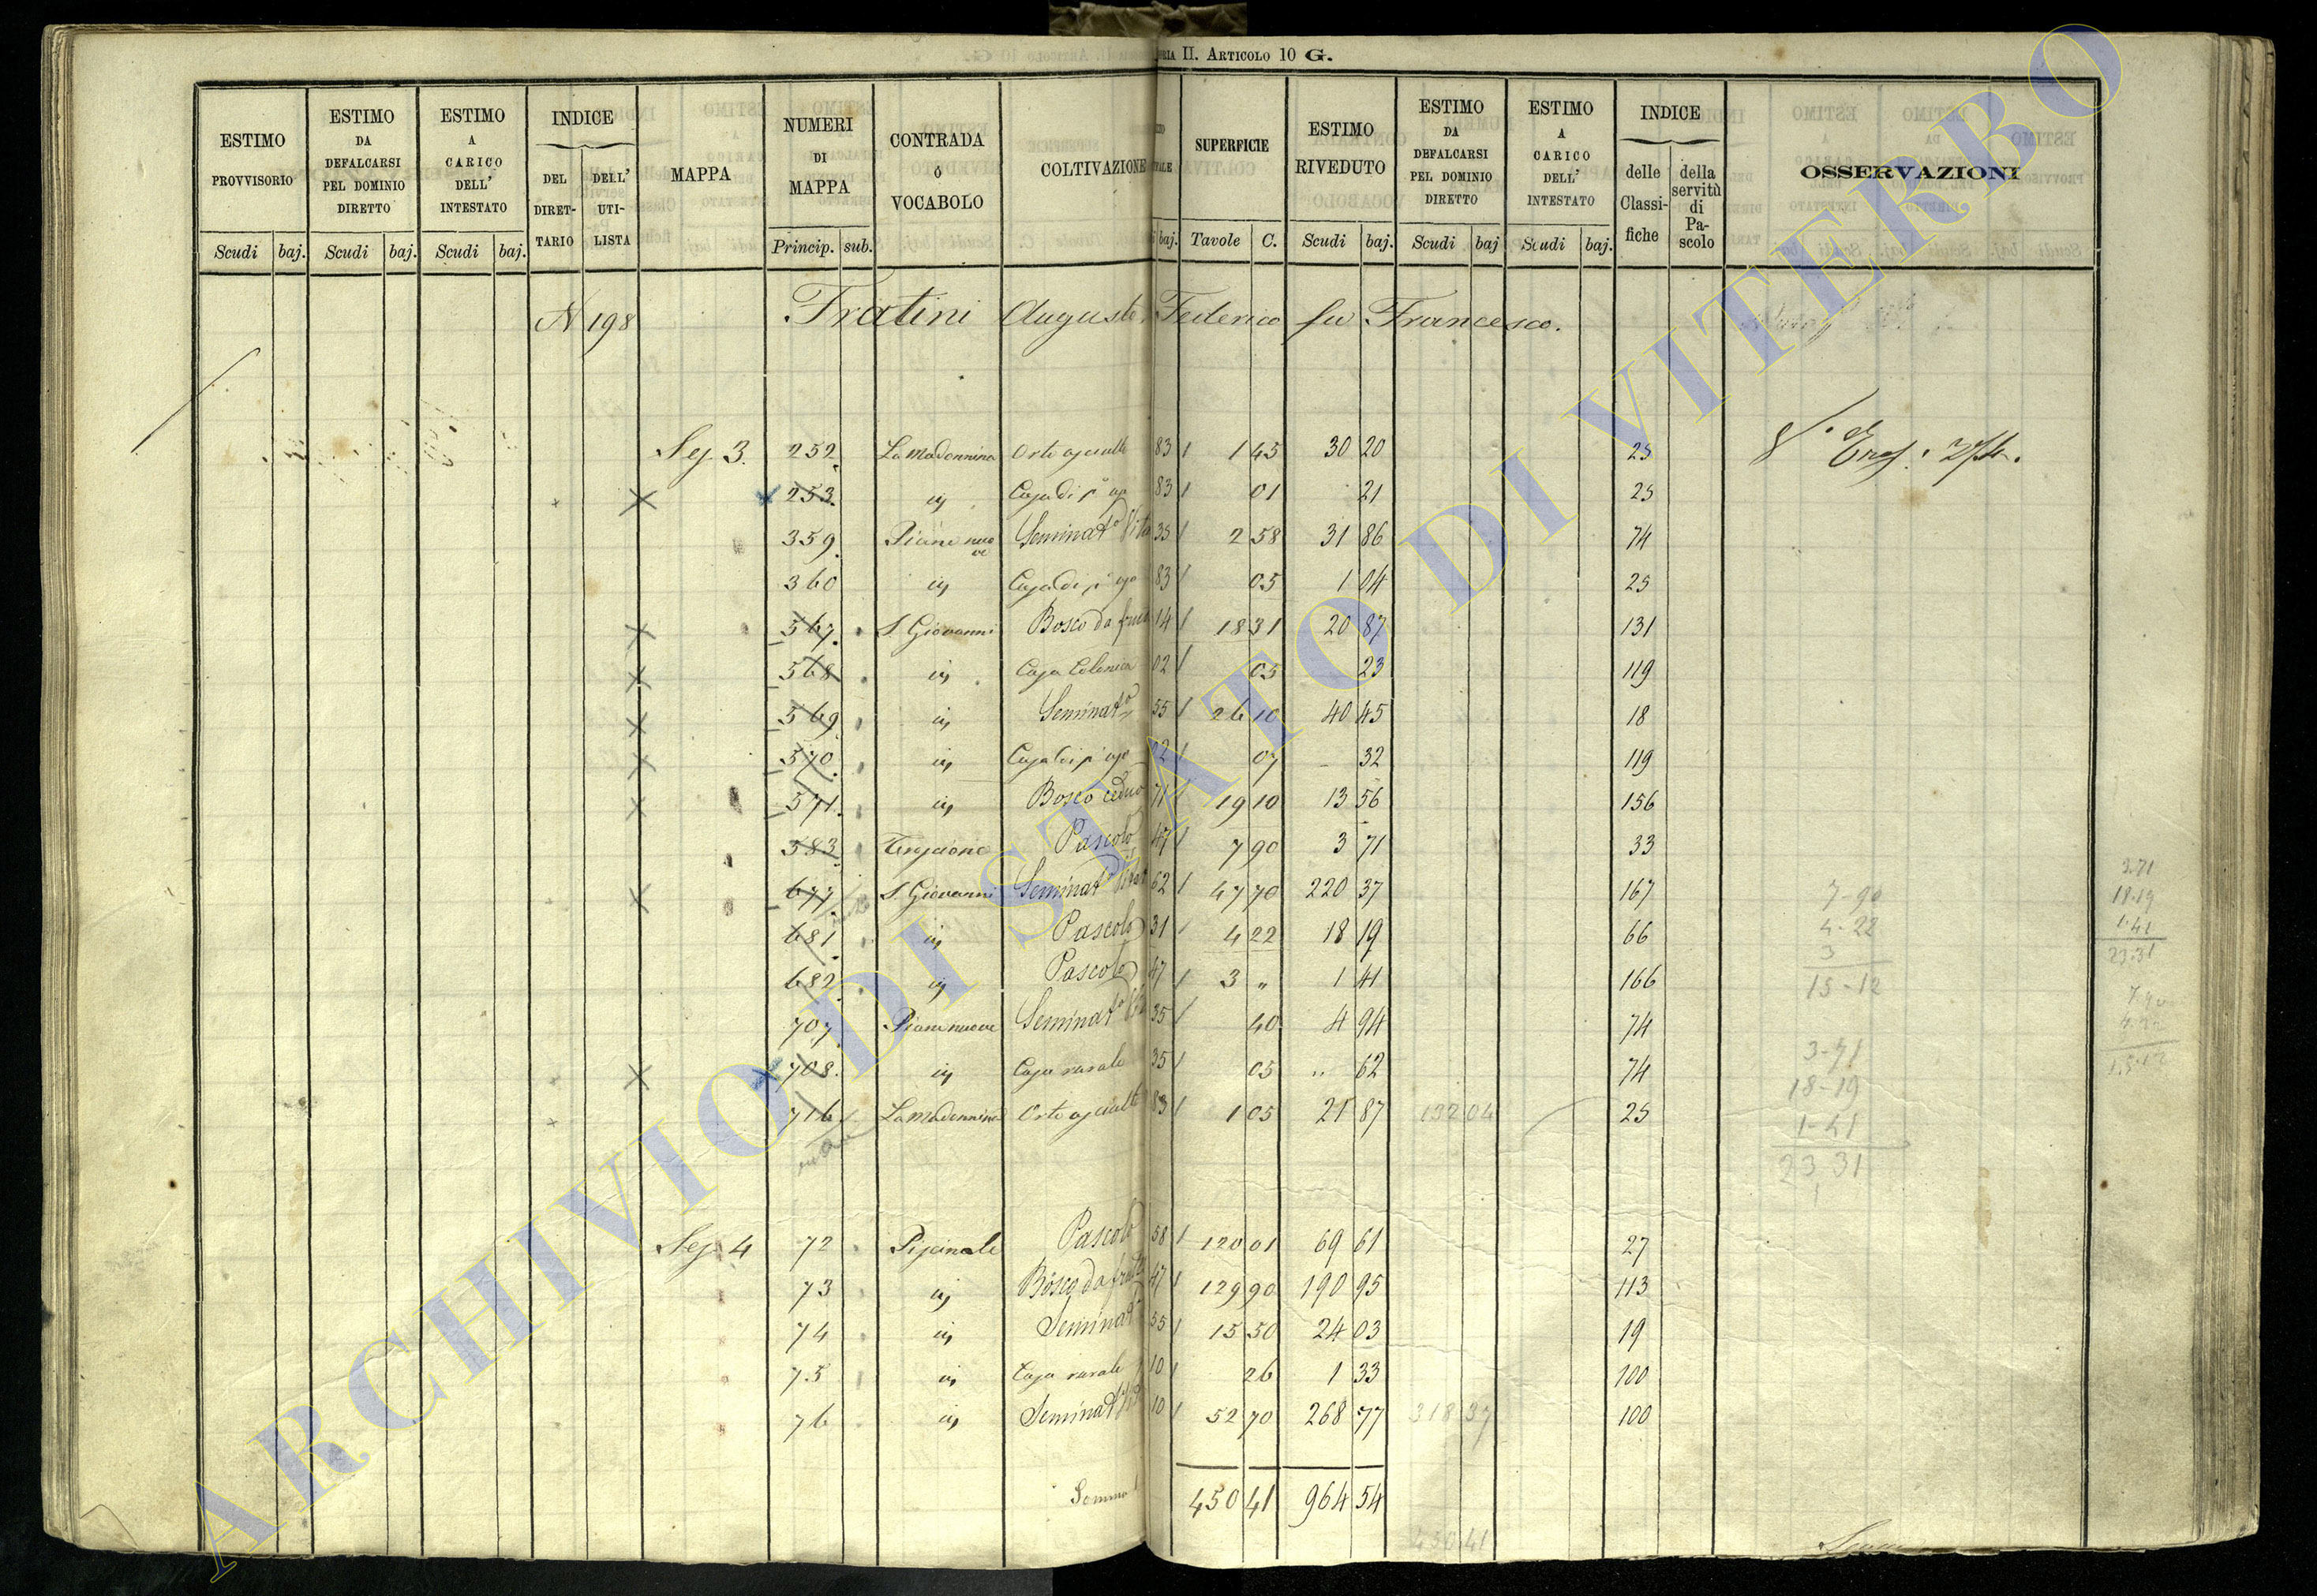 ORIA II. ARTICOLO 10 G.
ESTIMO PROVVISORIO | ESTIMO DA DEFALCARSI PEL DOMINIO DIRETTO | ESTIMO A CARICO DELL' INTESTATO | INDICE DEL DIRET-TARIO | DELL' UTI-LISTA | MAPPA | NUMERI DI MAPPA | CONTRADA o VOCABOLO | COLTIVAZIONE | SUPERFICIE | ESTIMO RIVEDUTO | ESTIMO DA DEFALCARSI PEL DOMINIO DIRETTO | ESTIMO A CARICO DELL' INTESTATO | INDICE delle Classi-fiche | della servitù di Pa-scolo | OSSERVAZIONI
Scudi baj. Scudi baj. Scudi baj. Princip. sub. baj. Tavole C. Scudi baj. Scudi baj Scudi baj.
N 198 Fratini Augusto, Federico fu Francesco.
Sez 3. 252 La Madonnina Orto asciutto 83 1 43 30 20 25
253. 83 01 21 25
359. Piane nuove Seminat.o Vita 35 2 58 31 86 74
360 83 05 1 04 25
567. S. Giovanni Bosco da frut 14 18 31 20 87 131
568 Casa Colonica 02 05 23 119
569 Seminat.o 55 26 10 40 45 18
570. 07 32 119
571. Bosco ceduo 71 19 10 13 56 156
583. Pascolo 47 7 90 3 71 33
677 S. Giovanni Seminat.o Vitat 62 47 70 220 37 167
681 Pascolo 31 4 22 18 19 66
682 Pascolo 47 3 " 1 41 166
707 Piane nuove Seminat.o Vit 35 40 4 94 74
708. Casa rurale 35 05 " 62 74
716 La Madonnina Orto asciutto 83 1 05 21 87 132 04 25
Sez 4 72 Piscinale Pascolo 58 120 01 69 61 27
73 Bosco da frutto 47 129 90 190 95 113
74 Seminat.o 55 15 50 24 03 19
75 Casa rurale 10 26 1 33 100
76 Seminat.o Vit 10 52 70 268 77 318 37 100
Somma 450 41 964 54
450 41
7-90
4-22
3
15-12
3-71
18-19
1-41
23,31
3.71
18.19
1.41
23.31
ARCHIVIO DI STATO DI VITERBO